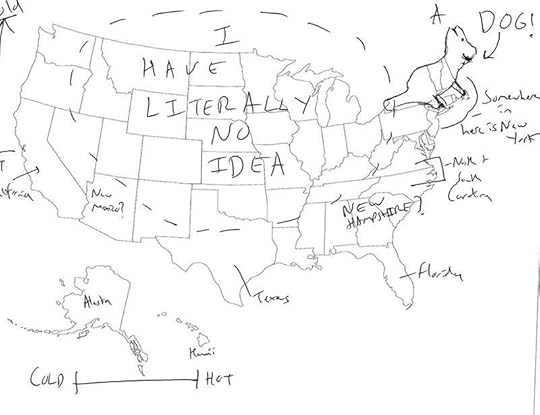 old
I
A
DOG!
HAVE
LITERALLY
NO
IDEA
Somewhere
in
here is New
York
North &
South
Carolina
New
Mexico?
NEW
HAMPSHIRE?
Florida
Texas
Alaska
Hawaii
COLD
HOT